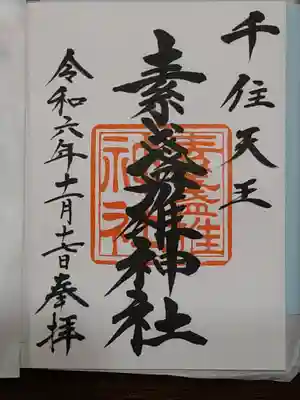 千住天王
素盞雄神社
令和六年十一月十七日奉拝